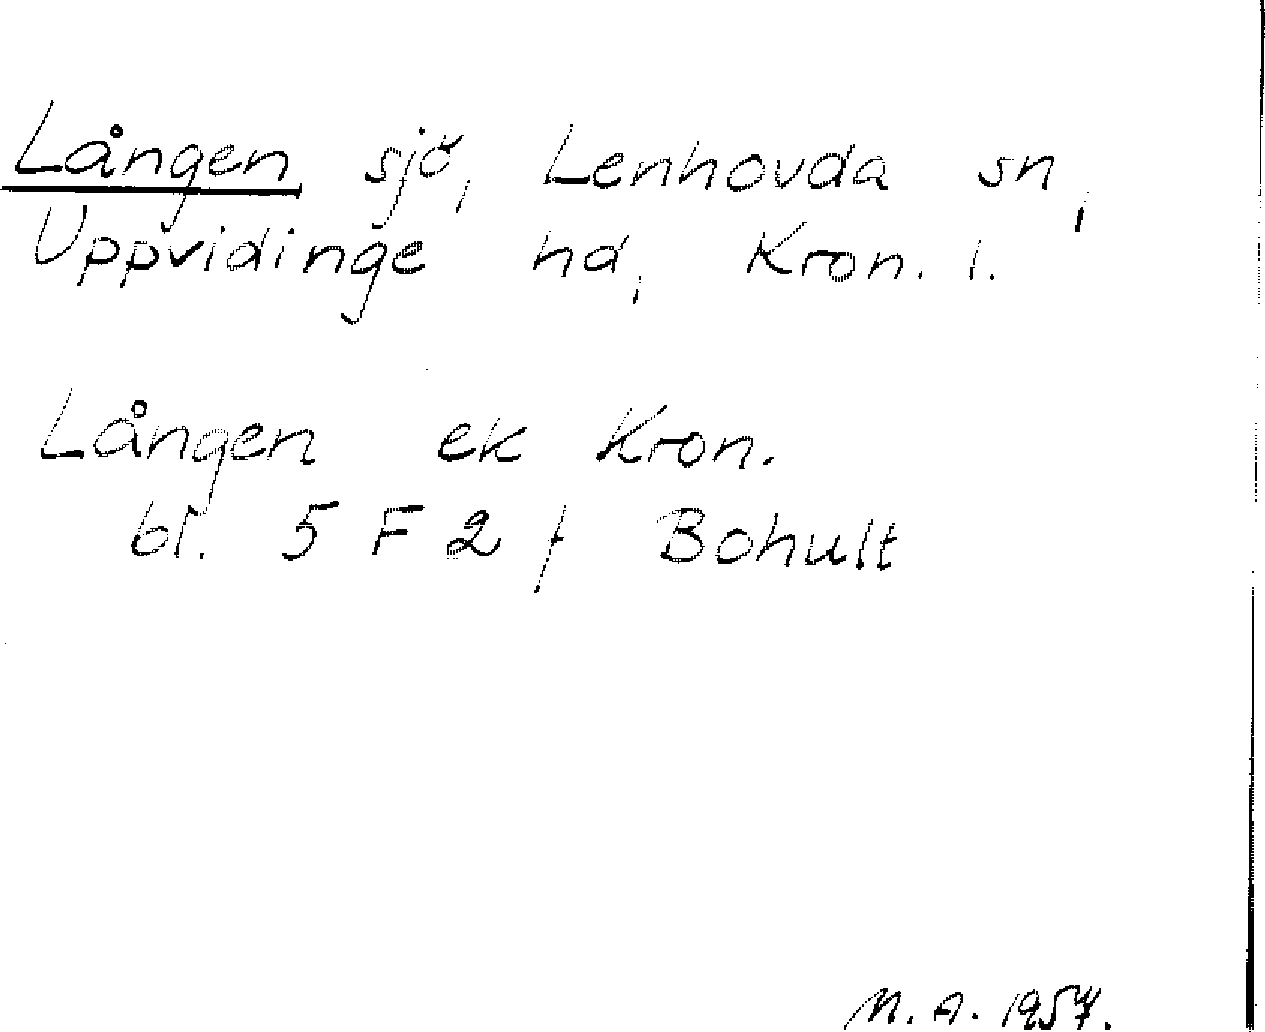 Lången sjö, Lenhovda sn,
Uppvidinge hd, Kron. l.
Lången ek Kron.
bl. 5 F 2 f Bohult
M. A. 1957.